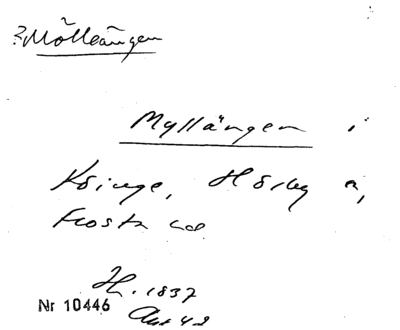 ? Mölleängen
Myllängen i
Köinge, Hörby sn,
Frosta hd
H. 1837
Nr 10446
Akt 42